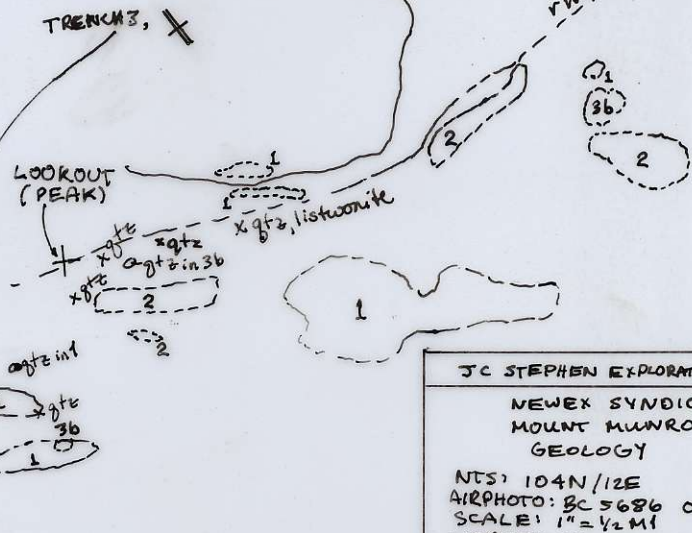 TRENCH 3,
1
3b
2
2
LOOKOUT
(PEAK)
1
1
x qtz, listwonite
x qtz
x qtz
qtz in 3b
x qtz
2
1
2
qtz in 1
x qtz
3b
1
JC STEPHEN EXPLORAT
NEWEX SYNDIC
MOUNT MUNRO
GEOLOGY
NTS: 104N/12E
AIRPHOTO: BC 5686
SCALE: 1" = 1/2 MI